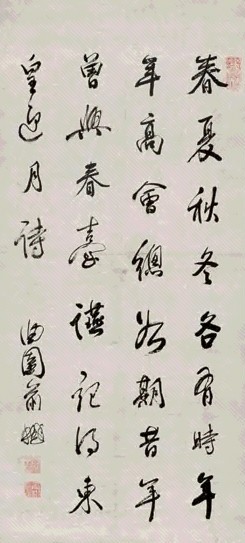 春夏秋冬各有時年
年高會總如期昔年
曾與春臺讌記得東
皇迎月詩
曲園俞樾